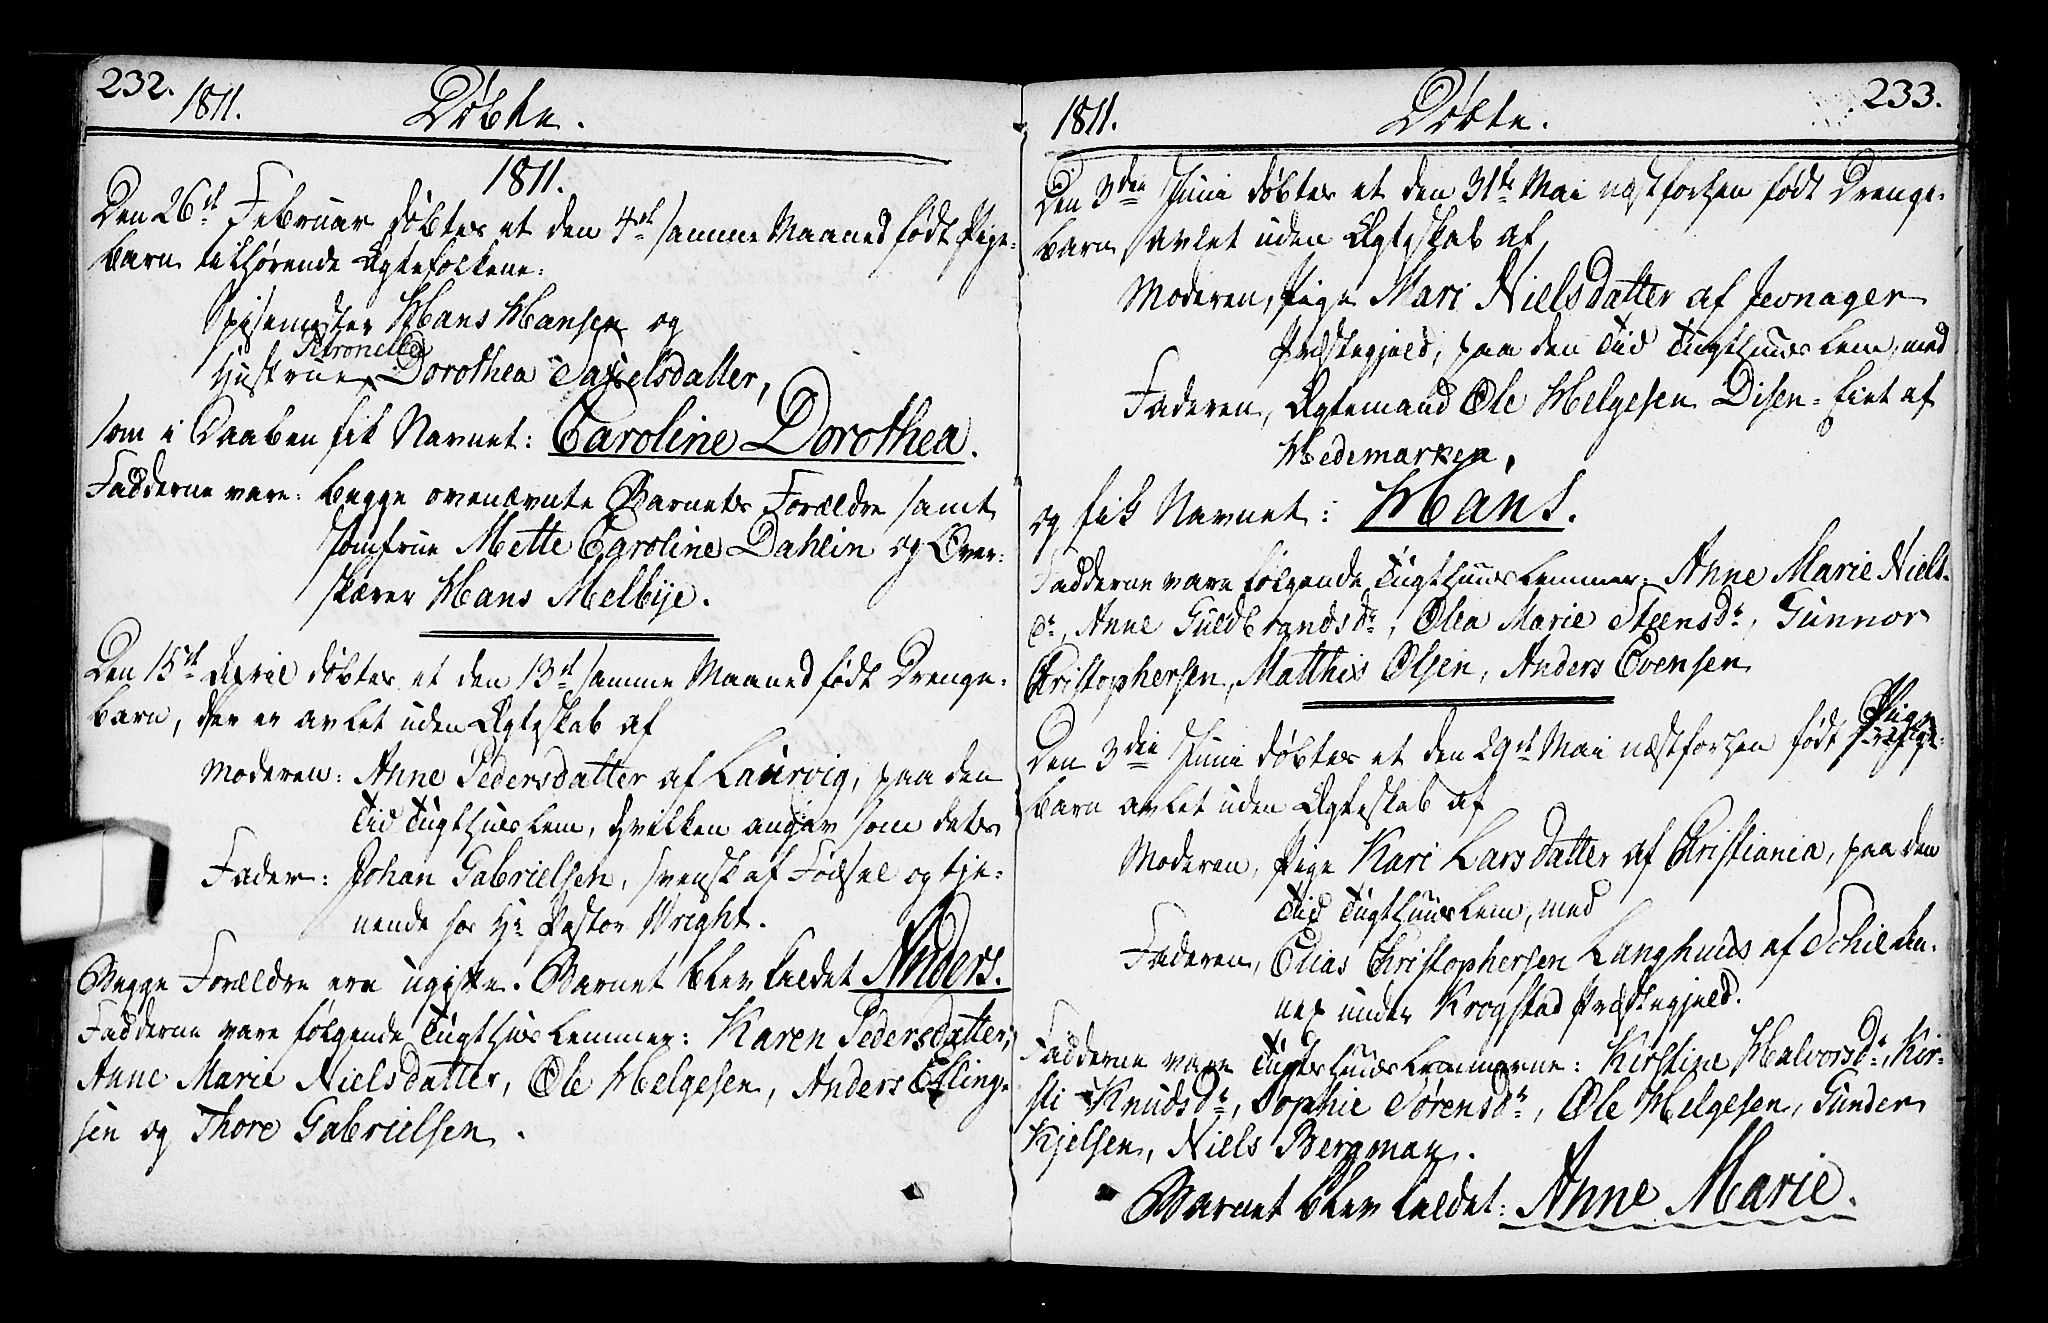 232.
1811. Døbte.
1811.
Den 26de Februar døbtes et den 4de samme Maaned født Pige-
barn tilhørende Ægtefolkene:
Spisemester Hans Hansen og
Petronelle
Hustrue Dorothea Saxelsdatter,
som i Daaben fik Navnet: Caroline Dorothea.
Fadderne vare: begge ovenævnte Barnets Forældre samt
Jomfrue Mette Caroline Dahlin og Over-
skærer Hans Melbye.
Den 15de April døbtes et den 13de samme Maaned født Drenge-
barn, der er avlet uden Ægteskab af
Moderen: Anne Pedersdatter af Laurvig, paa den
Tid Tugthuus Lem, hvilken angav som dets
Fader: Johan Gabrielsen, svensk af Fødsel og tje-
nende hos Hr Pastor Wright.
Begge Forældre ere ugifte. Barnet blev kaldet Anders.
Fadderne vare følgende Tugthuus Lemmer: Karen Pedersdatter,
Anne Marie Nielsdatter, Ole Helgesen, Anders Elling-
sen og Thore Gabrielsen.
233.
1811. Døbte.
Den 3die Juni døbtes et den 31te Mai næstforhen født Drenge-
barn, avlet uden Ægteskab af
Moderen, Pige Mari Nielsdatter af Jevnager
Præstegjeld, paa den Tid Tugthuus Lem, med
Faderen, Ægtemand Ole Helgesen Disen-Eiet af
Hedemarken,
og fik Navnet: Hans.
Fadderne vare følgende Tugthuus Lemmer: Anne Marie Niels-
dr, Anne Guldbrandsdr, Olea Marie Steensdr, Gunnor
Christophersen, Matthis Olsen, Anders Evensen
Den 3die Juni døbtes et den 29de Mai næstforhen født Pige-
barn avlet uden Ægteskab af
Moderen, Pige Kari Larsdatter af Christiania, paa den
Tid Tugthuus Lem, med
Faderen, Elias Christophersen Langhuus af Schieden-
næs under Krogstad Præstegjeld.
Fadderne vare Tugthuus Lemmerne: Kirstine Halvorsdr, Kir-
sti Knudsdr, Sophie Sørensdr, Ole Helgesen, Gunder
Kjelsen, Niels Bergman.
Barnet blev kaldet: Anne Marie.